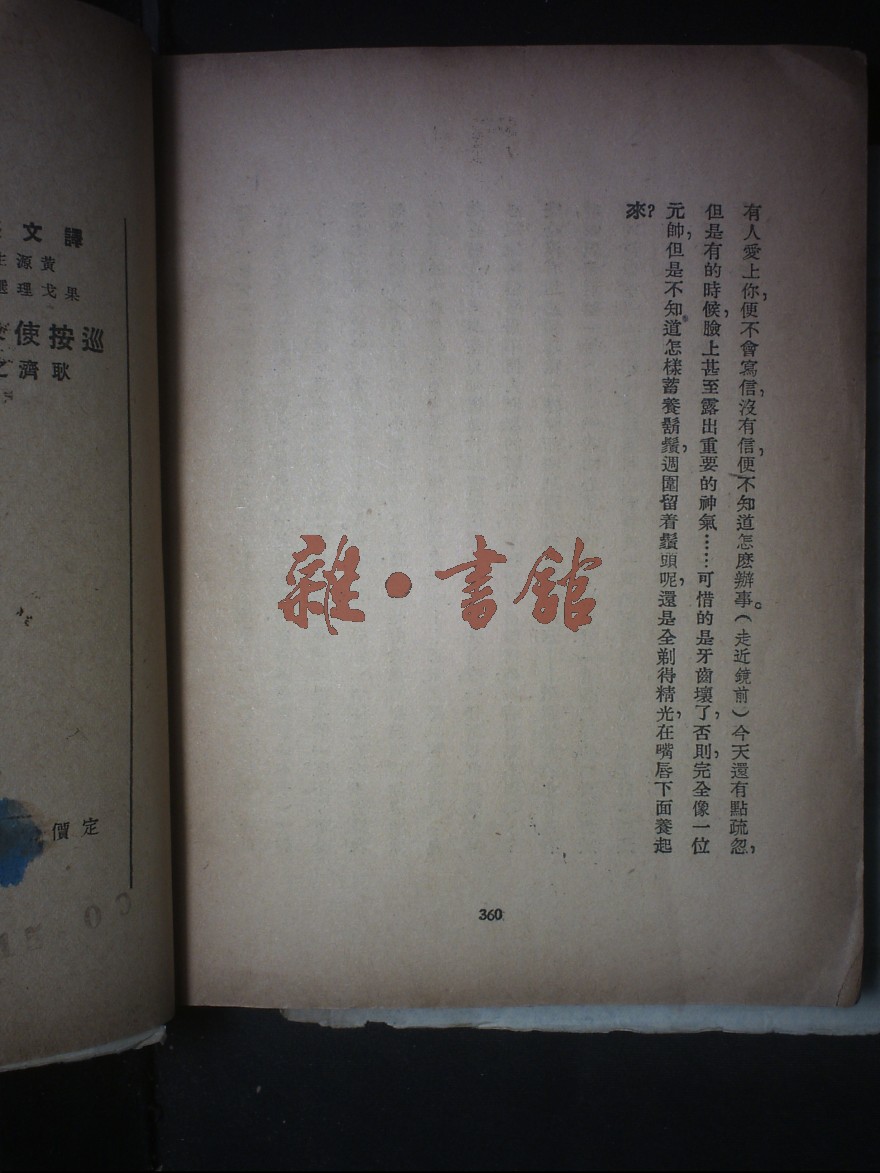 有人愛上你，便不會寫信，沒有信，便不知道怎麽辦事。（走近鏡前）今天還有點疏忽，
但是有的時候，臉上甚至露出重要的神氣……可惜的是牙齒壞了，否則，完全像一位
元帥，但是不知道怎樣蓄養鬍鬚，週圍留着鬚頭呢，還是全剃得精光，在嘴唇下面養起
來？
360
雜·書舘
譯文
黃源主
果戈理選
巡按使
耿濟之
定價
15 00